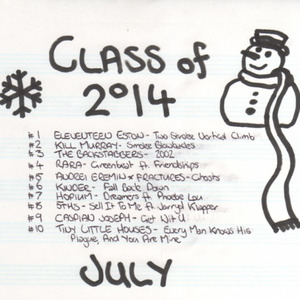 CLASS of
2014
#1 ELEVENTEEN ESTON - Two Sixoise Vertical Climb
#2 KILL MURRAY - Smoke Blackades
#3 THE BACKSTABBERS - 2002
#4 RARA - Greenboat ft. Friendships
#5 ANDREI EREMIN x FRACTURES - Ghosts
#6 KINDER - Fall Back Down
#7 HOPIUM - Dreamers ft. Phoebe Lou
#8 5THS - Sell It To Me ft. Jarryd Klapper
#9 CASPIAN JOSEPH - Get With U
#10 TINY LITTLE HOUSES - Every Man Knows His
Plague, And You Are Mine
JULY